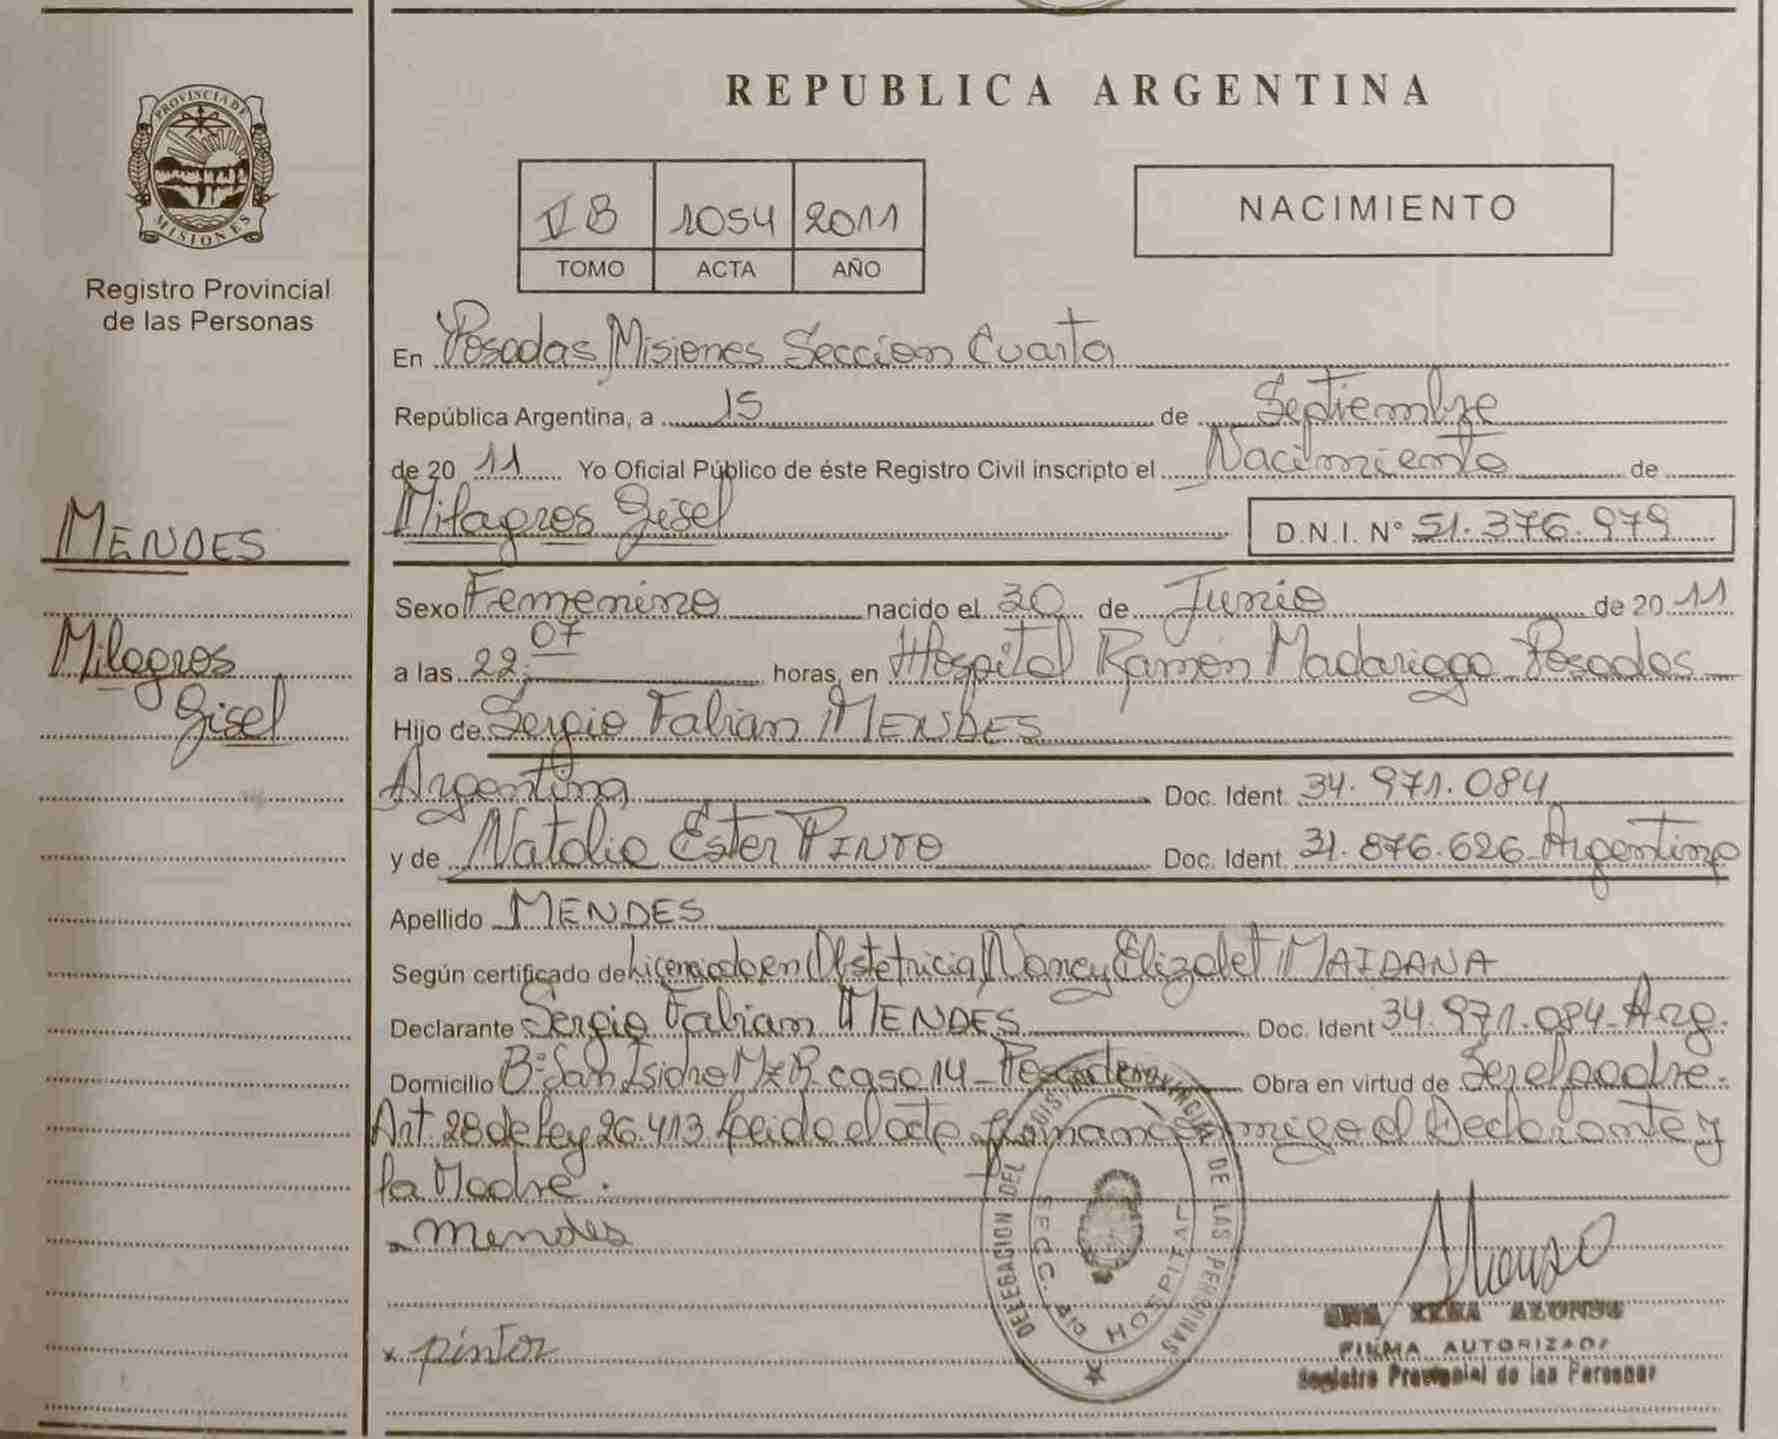 REPUBLICA ARGENTINA
PROVINCIA DE
MISIONES
Registro Provincial
de las Personas
VB 1054 2011
TOMO ACTA AÑO
NACIMIENTO
En Posadas Misiones Seccion Cuarta
República Argentina, a 15 de Septiembre
de 20 11 Yo Oficial Público de éste Registro Civil inscripto el Nacimiento de
Milagros Gisel D.N.I. N° 51.376.979
MENDES
Milagros
Gisel
Sexo Femenino nacido el 30 de Junio de 20 11
a las 22:07 horas, en Hospital Ramon Madariaga Posadas
Hijo de Sergio Fabian MENDES
Argentina Doc. Ident. 34.971.084
y de Natalia Ester PINTO Doc. Ident. 31.876.626 Argentina
Apellido MENDES
Según certificado de Licenciada en Obstetricia Nancy Elizabet MAIDANA
Declarante Sergio Fabian MENDES Doc. Ident 34.971.084 Arg.
Domicilio B° San Isidro Mz B casa 14 - Posadas Obra en virtud de Ser el padre.
Art 28 de ley 26.413 leida el acta firman conmigo el Declarante y
la Madre.
mendes
x pintor
DELEGACION DEL REGISTRO PROVINCIAL DE LAS PERSONAS
SECC. 4ta HOSPITAL
ALONSO
FIRMA AUTORIZADA
Registro Provincial de las Personas